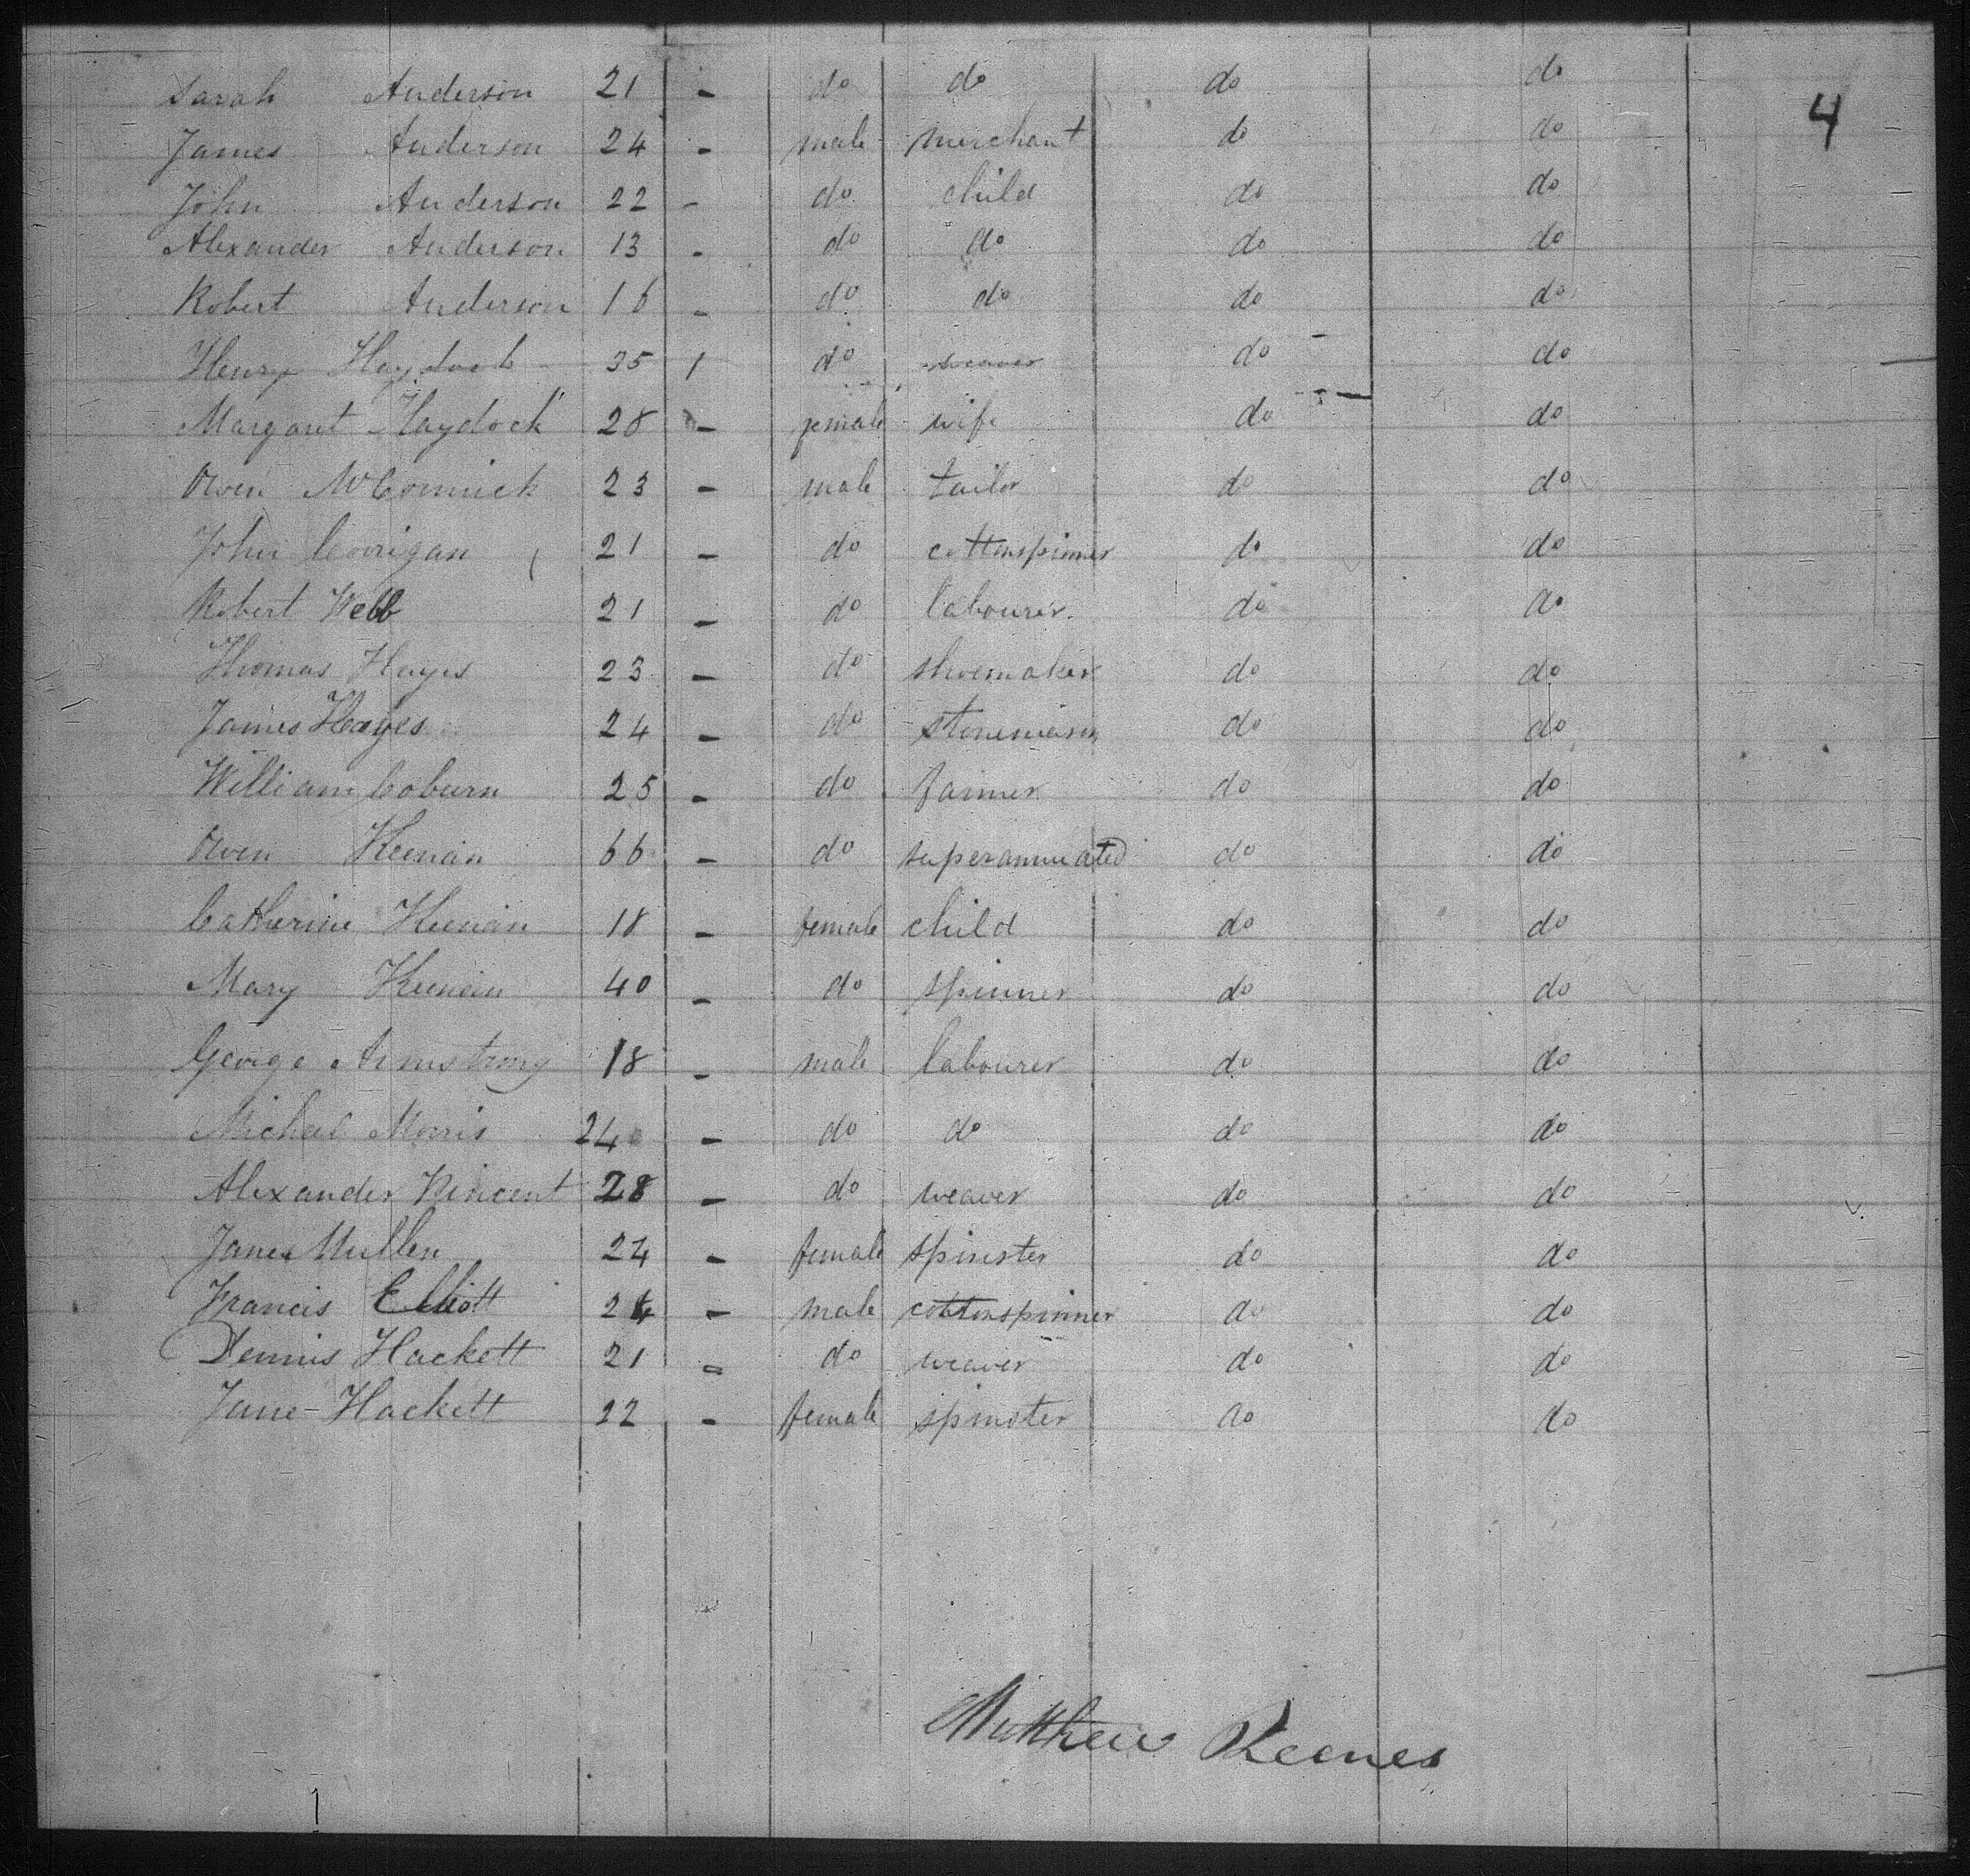 Sarah Anderson 21 - do do do do
4
James Anderson 24 - male merchant do do
John Anderson 22 - do child do do
Alexander Anderson 13 - do do do do
Robert Anderson 16 - do do do do
Henry Haydock 35 1 do weaver do - do
Margaret Haydock 28 - female wife do do
Owen McCormick 23 - male tailor do do
John Corrigan 21 - do cottonspinner do do
Robert Webb 21 - do labourer. do do
Thomas Hayes 23 - do shoemaker do do
James Hayes 24 - do stonemason do do
William Coburn 25 - do farmer do do
Owen Keenan 66 - do superannuated do do
Catherine Keenan 18 - female child do do
Mary Keenan 40 - do spinner do do
George Armstrong 18 - male labourer do do
Michael Morris 24 - do do do do
Alexander Vincent 28 - do weaver do do
Jane Mullen 24 - female spinster do do
Francis Elliott 24 - male cottonspinner do do
Dennis Hackett 21 - do weaver do do
Jane Hackett 22 - female spinster do do
Matthew Reenes